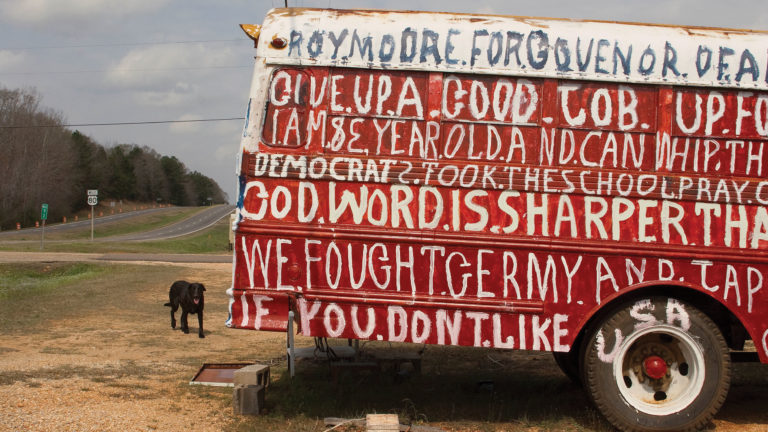 ROY.MOORE.FOR.GOVENOR.DEA
GIVE.UP.A.GOOD.JOB UP.FO
I AM 82 YEAR OLD.AND.CAN WHIP.TH
DEMOCRATS.TOOK.THE SCHOOL PRAY O
GOD.WORD.IS.SHARPER.THA
WE.FOUGHT.GERMY.AND.JAP
IF YOU.DON'T.LIKE
USA
80